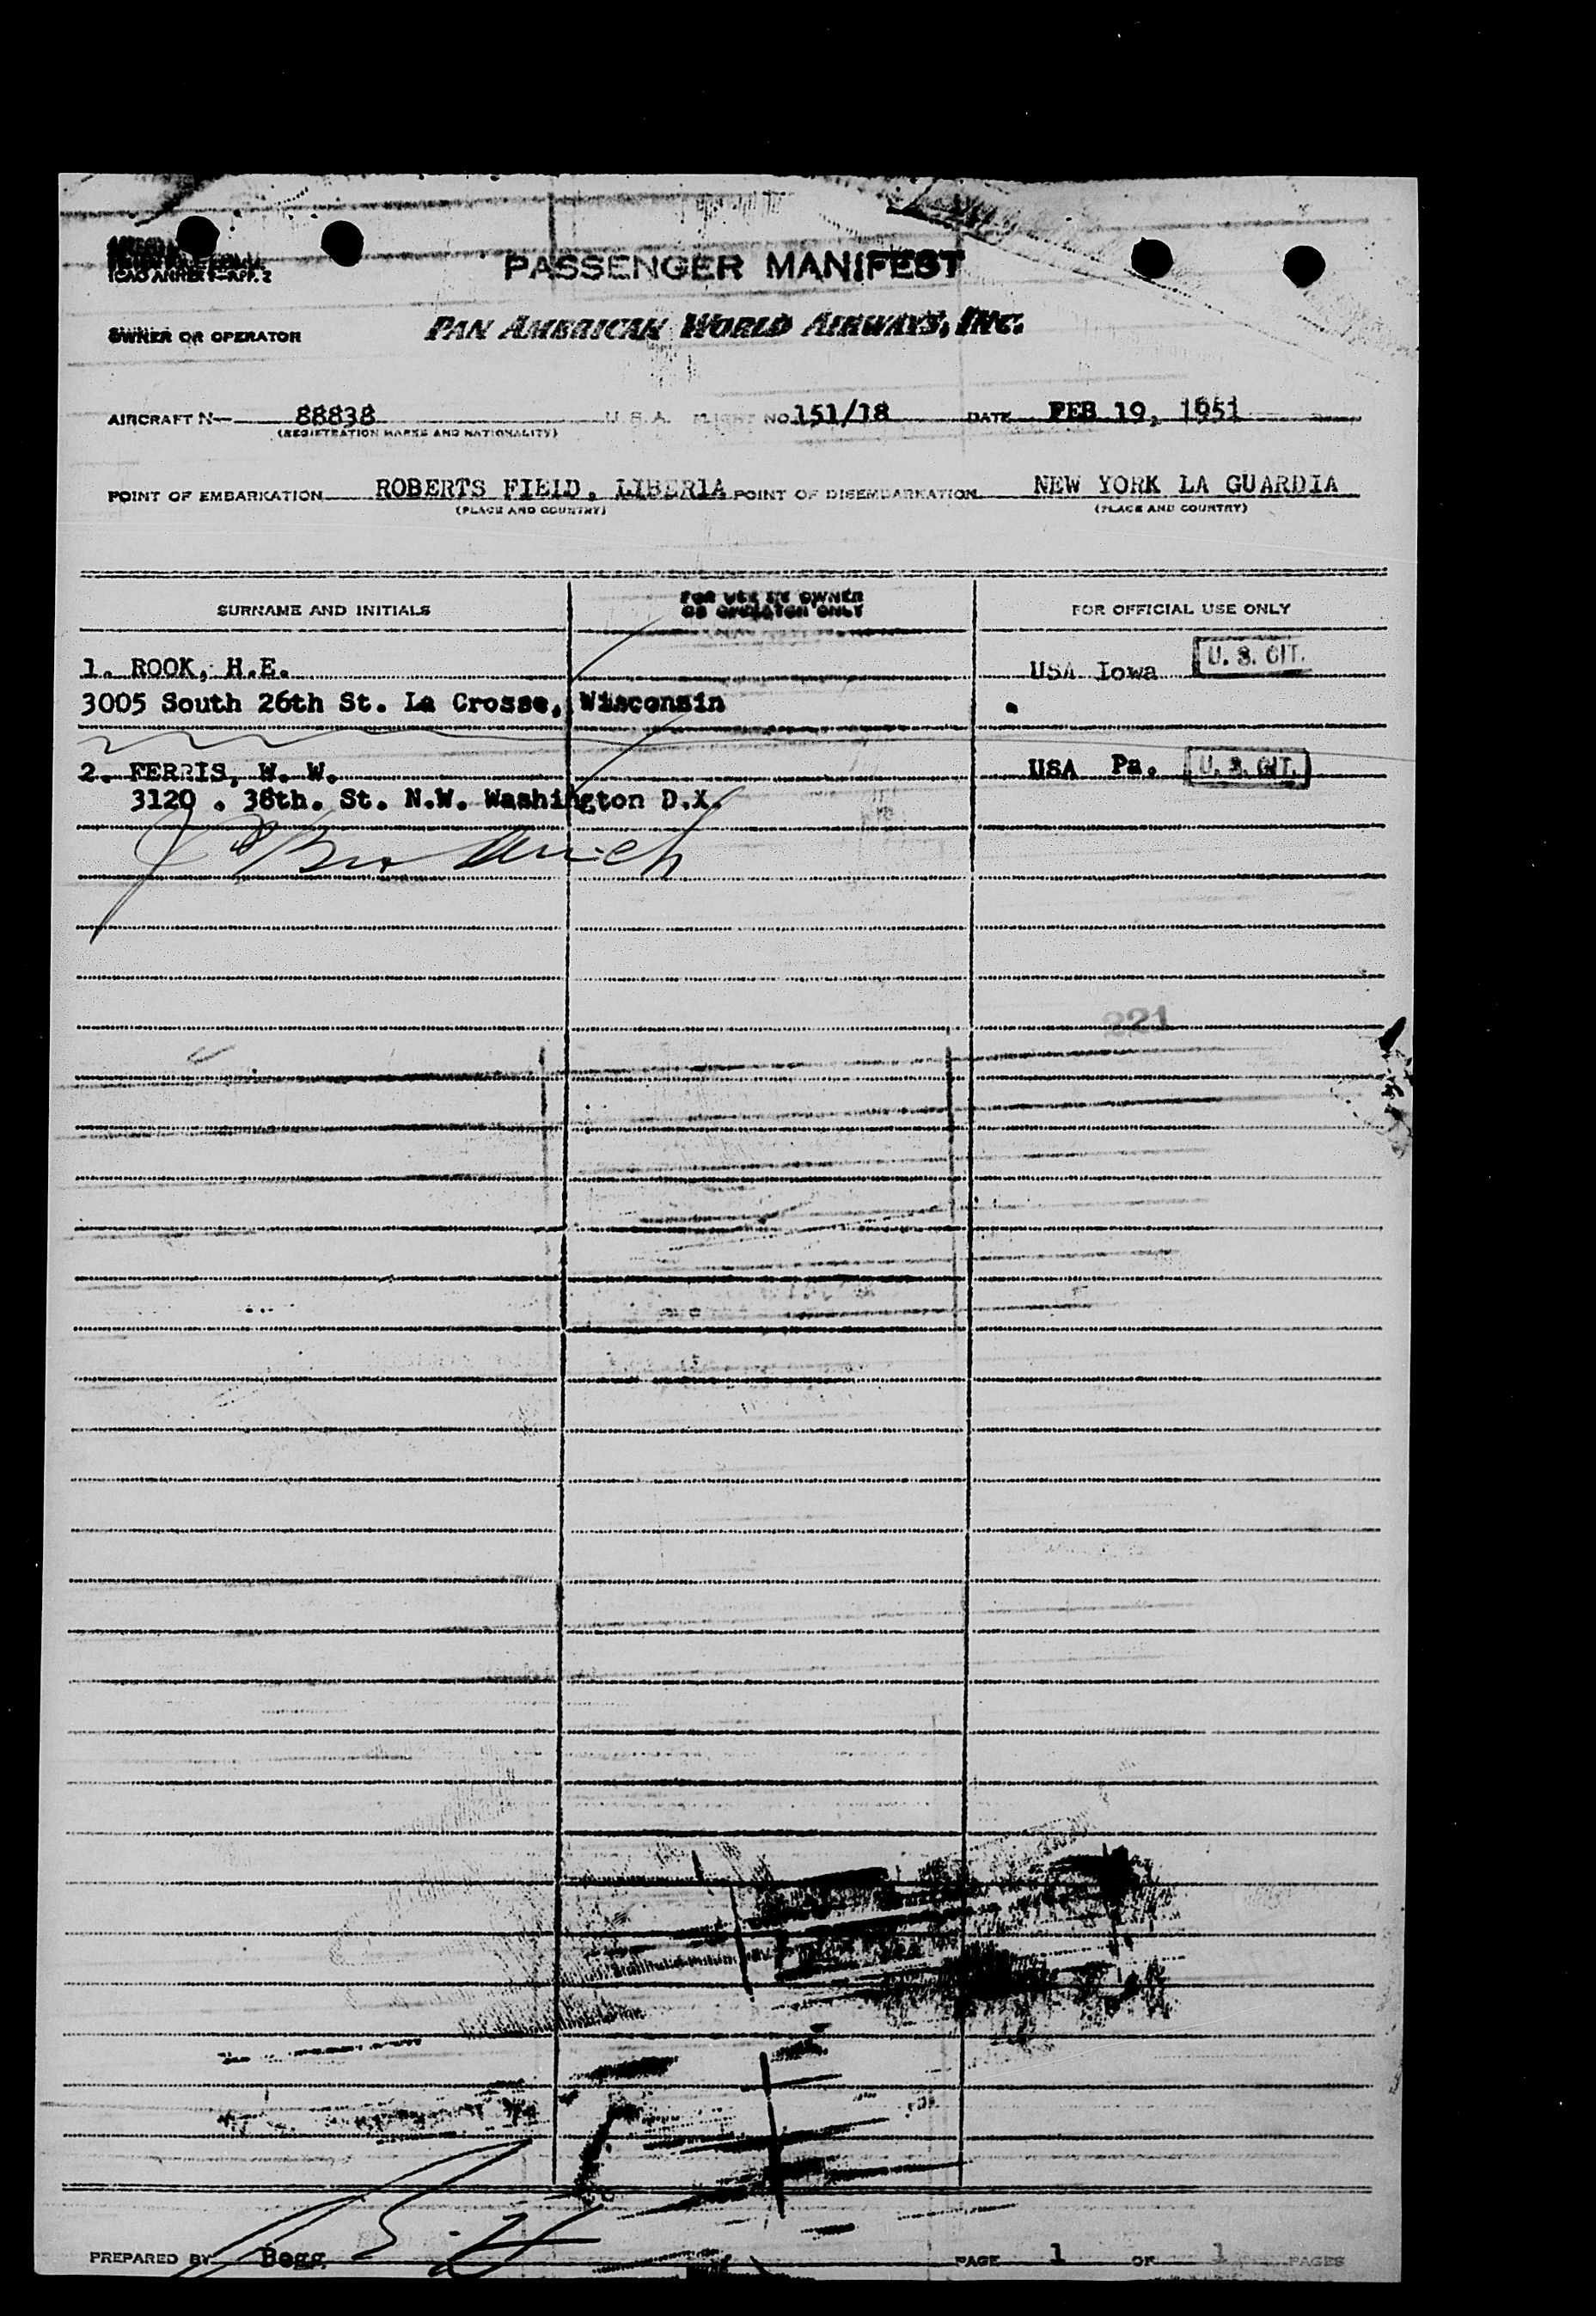 ICAO ANNEX 9-APP. 2
PASSENGER MANIFEST
OWNER OR OPERATOR PAN AMERICAN WORLD AIRWAYS, INC.
AIRCRAFT N- 88838 U.S.A. FLIGHT NO. 151/18 DATE FEB 19, 1951
(REGISTRATION MARKS AND NATIONALITY)
POINT OF EMBARKATION ROBERTS FIELD, LIBERIA POINT OF DISEMBARKATION NEW YORK LA GUARDIA
(PLACE AND COUNTRY) (PLACE AND COUNTRY)
SURNAME AND INITIALS FOR USE BY OWNER OR OPERATOR ONLY FOR OFFICIAL USE ONLY
1. ROOK, H.E. USA Iowa U. S. CIT.
3005 South 26th St. La Crosse, Wisconsin
2. FERRIS, W. W. USA Pa. U. S. CIT.
3120 . 38th. St. N.W. Washington D.X.
221
PREPARED BY Begg PAGE 1 OF 1 PAGES